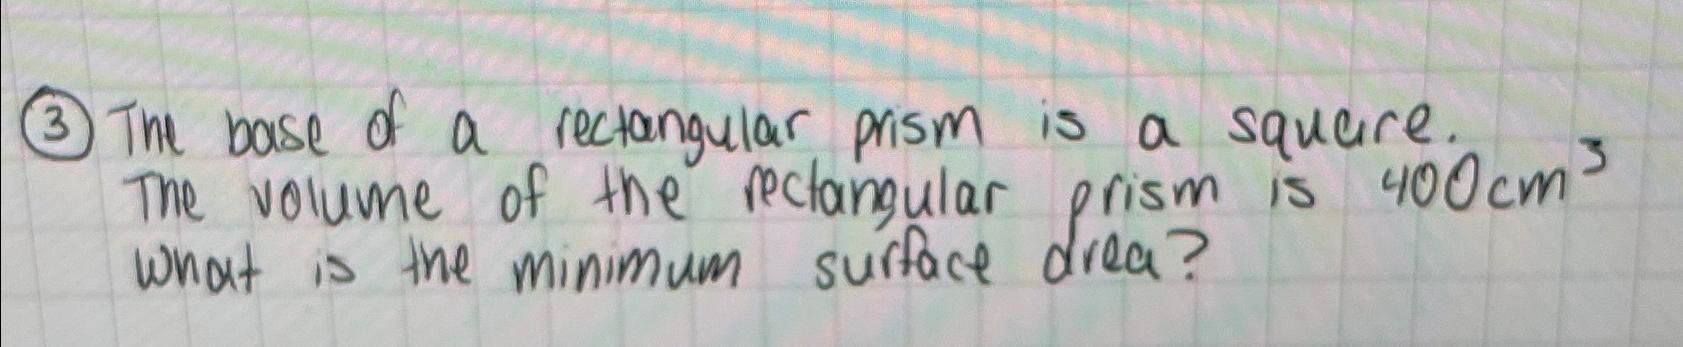 ③ The base of a rectangular prism is a square.
The volume of the rectangular prism is 400cm³
What is the minimum surface area?